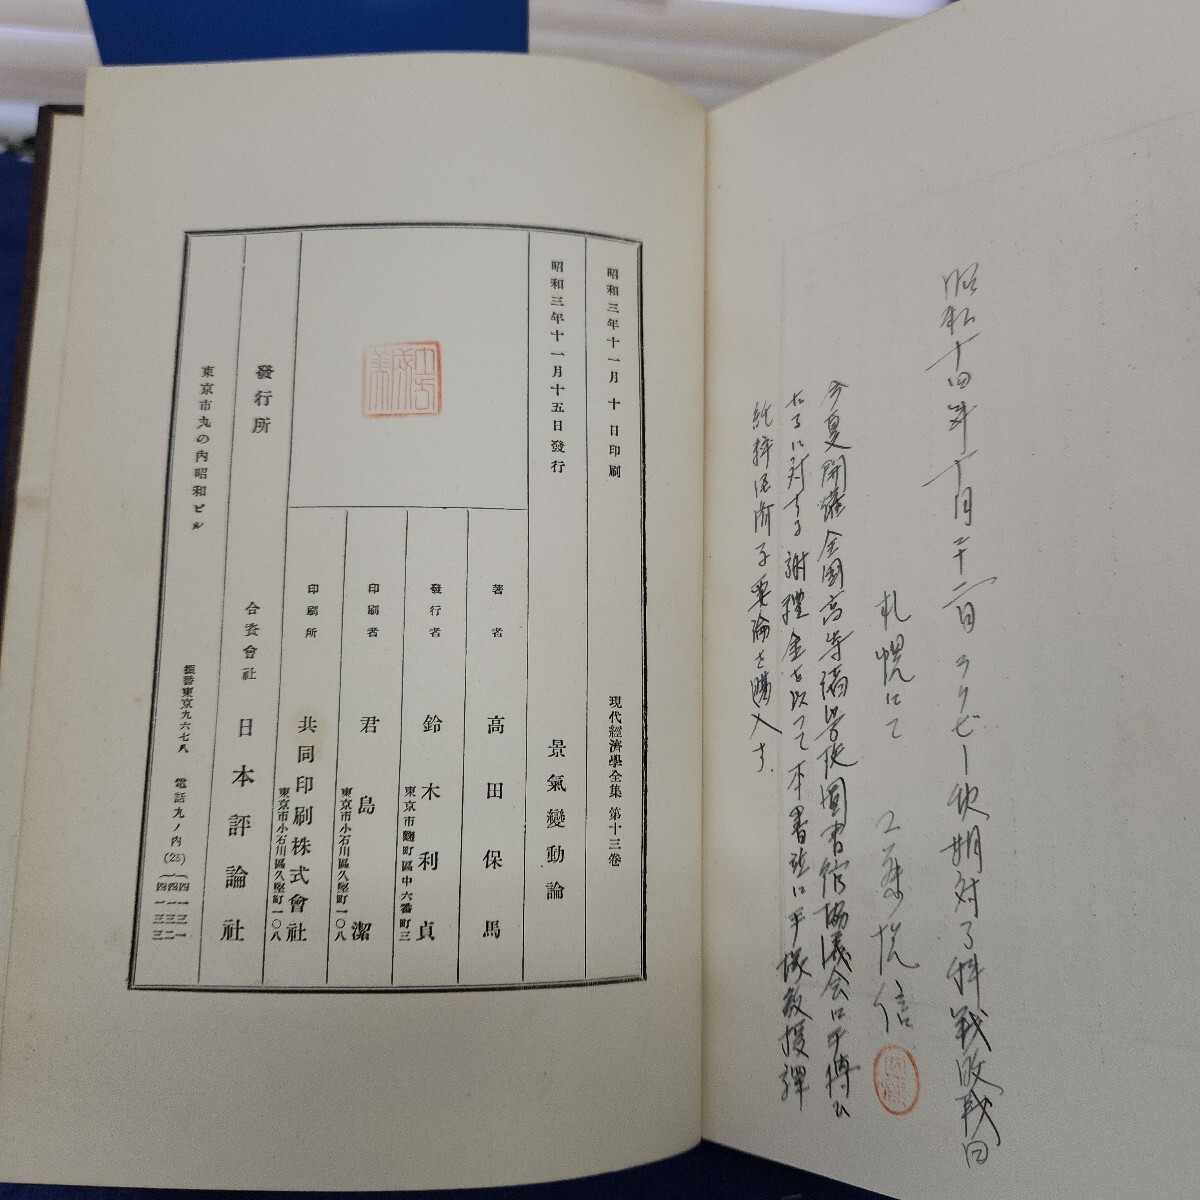 昭和十四年十月二十二日 ラグビー秋期対了科戦敗戦日
札幌にて 工藤悦信
今夏開催全国高等諸学校図書館協議会に手搏ひ
たるに対する謝禮金を以つて本書並に手塚教授譯
純粋経済学要論を購入す.
昭和三年十一月 十 日印刷
昭和三年十一月十五日發行
現代經濟學全集 第十三卷
景氣變動論
著者 高田保馬
發行者 鈴木利貞
東京市麴町區中六番町三
印刷者 君島潔
東京市小石川區久堅町一〇八
印刷所 共同印刷株式會社
東京市小石川區久堅町一〇八
發行所 合資會社 日本評論社
東京市丸の內昭和ビル
振替東京九六七八 電話丸ノ內(23)